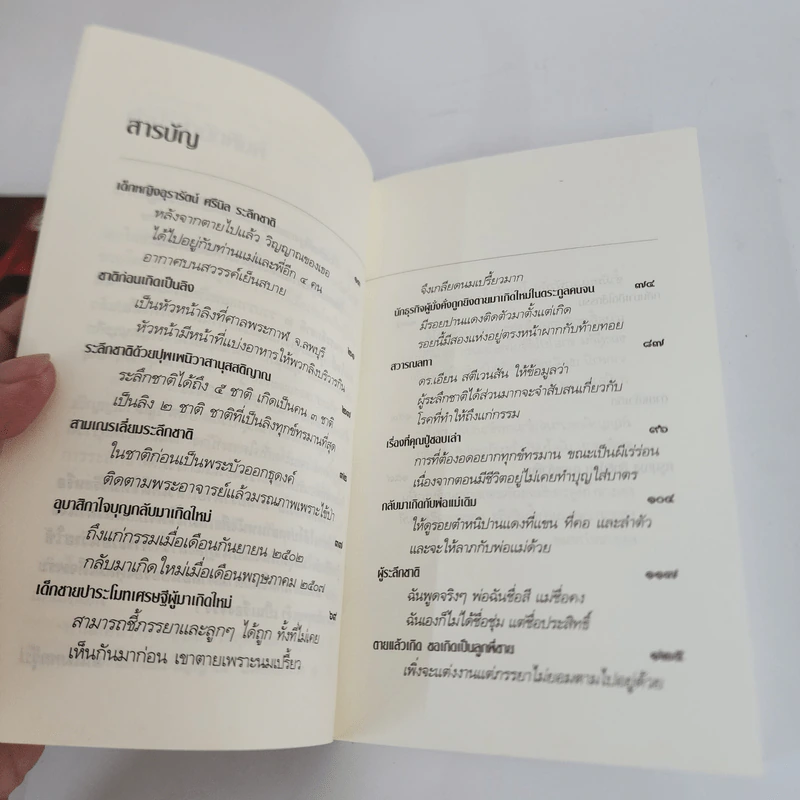 สารบัญ
เด็กหญิงอุรารัตน์ ศรีนิล ระลึกชาติ
หลังจากตายไปแล้ว วิญญาณของเธอ
ได้ไปอยู่กับท่านแม่และพี่อีก ๔ คน
อากาศบนสวรรค์เย็นสบาย
ชาติก่อนเกิดเป็นลิง
เป็นหัวหน้าลิงที่ศาลพระกาฬ จ.ลพบุรี
หัวหน้ามีหน้าที่แบ่งอาหารให้พวกลิงบริวารกิน
ระลึกชาติด้วยปุพเพนิวาสานุสสติญาณ
ระลึกชาติได้ถึง ๕ ชาติ เกิดเป็นคน ๓ ชาติ
เป็นลิง ๒ ชาติ ชาติที่เป็นลิงทุกข์ทรมานที่สุด
สามเณรเลี่ยมระลึกชาติ
ในชาติก่อนเป็นพระบัวออกธุดงค์
ติดตามพระอาจารย์แล้วมรณภาพเพราะไข้ป่า
อุบาสิกาใจบุญกลับมาเกิดใหม่
ถึงแก่กรรมเมื่อเดือนกันยายน ๒๕๐๒
กลับมาเกิดใหม่เมื่อเดือนพฤษภาคม ๒๕๐๗
เด็กชายประโมทเศรษฐีผู้มาเกิดใหม่
สามารถชี้ภรรยาและลูกๆ ได้ถูก ทั้งที่ไม่เคย
เห็นกันมาก่อน เขาตายเพราะนมเปรี้ยว
จึงเกลียดนมเปรี้ยวมาก
นักธุรกิจผู้มั่งคั่งถูกยิงตายมาเกิดใหม่ในตระกูลคนจน ๗๔
มีรอยปานแดงติดตัวมาตั้งแต่เกิด
รอยนี้มีสองแห่งอยู่ตรงหน้าผากกับท้ายทอย
สวารณลทา ๘๗
ดร.เอียน สตีเวนสัน ให้ข้อมูลว่า
ผู้ระลึกชาติได้ส่วนมากจะจำสับสนเกี่ยวกับ
โรคที่ทำให้ถึงแก่กรรม
เรื่องที่คุณปู่ชอบเล่า ๙๖
การที่ต้องอดอยากทุกข์ทรมาน ขณะเป็นผีเร่ร่อน
เนื่องจากตอนมีชีวิตอยู่ไม่เคยทำบุญใส่บาตร
กลับมาเกิดกับพ่อแม่เดิม ๑๐๔
ให้ดูรอยตำหนิปานแดงที่แขน ที่คอ และลำตัว
และจะให้ลาภกับพ่อแม่ด้วย
ผู้ระลึกชาติ ๑๑๗
ฉันพูดจริงๆ พ่อฉันชื่อสี แม่ชื่อคง
ฉันเองก็ไม่ได้ชื่อชุ่ม แต่ชื่อประสิทธิ์
ตายแล้วเกิด ขอเกิดเป็นลูกพี่ชาย ๑๒๕
เพิ่งจะแต่งงานแต่ภรรยาไม่ยอมตามไปอยู่ด้วย